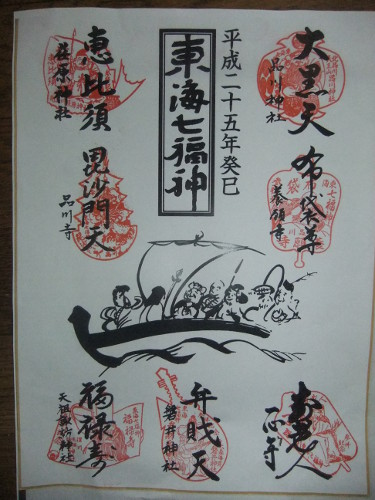 大黒天
品川神社
布袋尊
養願寺
寿老人
一心寺
平成二十五年癸巳
東海七福神
弁財天
磐井神社
恵比須
荏原神社
毘沙門天
品川寺
福禄寿
天祖諏訪神社